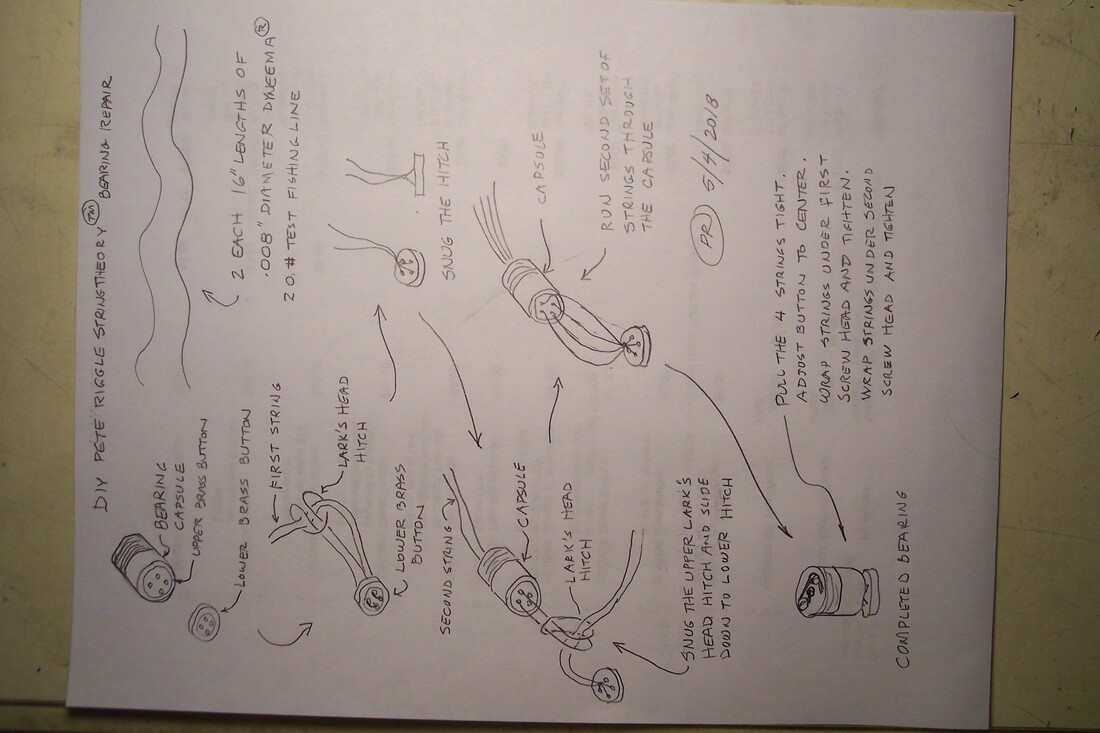 DIY PETE RIGGLE STRINGTHEORY TM BEARING REPAIR
BEARING
CAPSULE
UPPER BRASS BUTTON
LOWER BRASS BUTTON
2 EACH 16" LENGTHS OF
.008" DIAMETER DYNEEMA®
20 # TEST FISHING LINE
FIRST STRING
LARK'S HEAD
HITCH
LOWER BRASS
BUTTON
SNUG THE HITCH
SECOND STRING
CAPSULE
LARK'S HEAD
HITCH
SNUG THE UPPER LARK'S
HEAD HITCH AND SLIDE
DOWN TO LOWER HITCH
CAPSULE
RUN SECOND SET OF
STRINGS THROUGH
THE CAPSULE
PR 5/4/2018
PULL THE 4 STRINGS TIGHT.
ADJUST BUTTON TO CENTER.
WRAP STRINGS UNDER FIRST
SCREW HEAD AND TIGHTEN.
WRAP STRINGS UNDER SECOND
SCREW HEAD AND TIGHTEN
COMPLETED BEARING